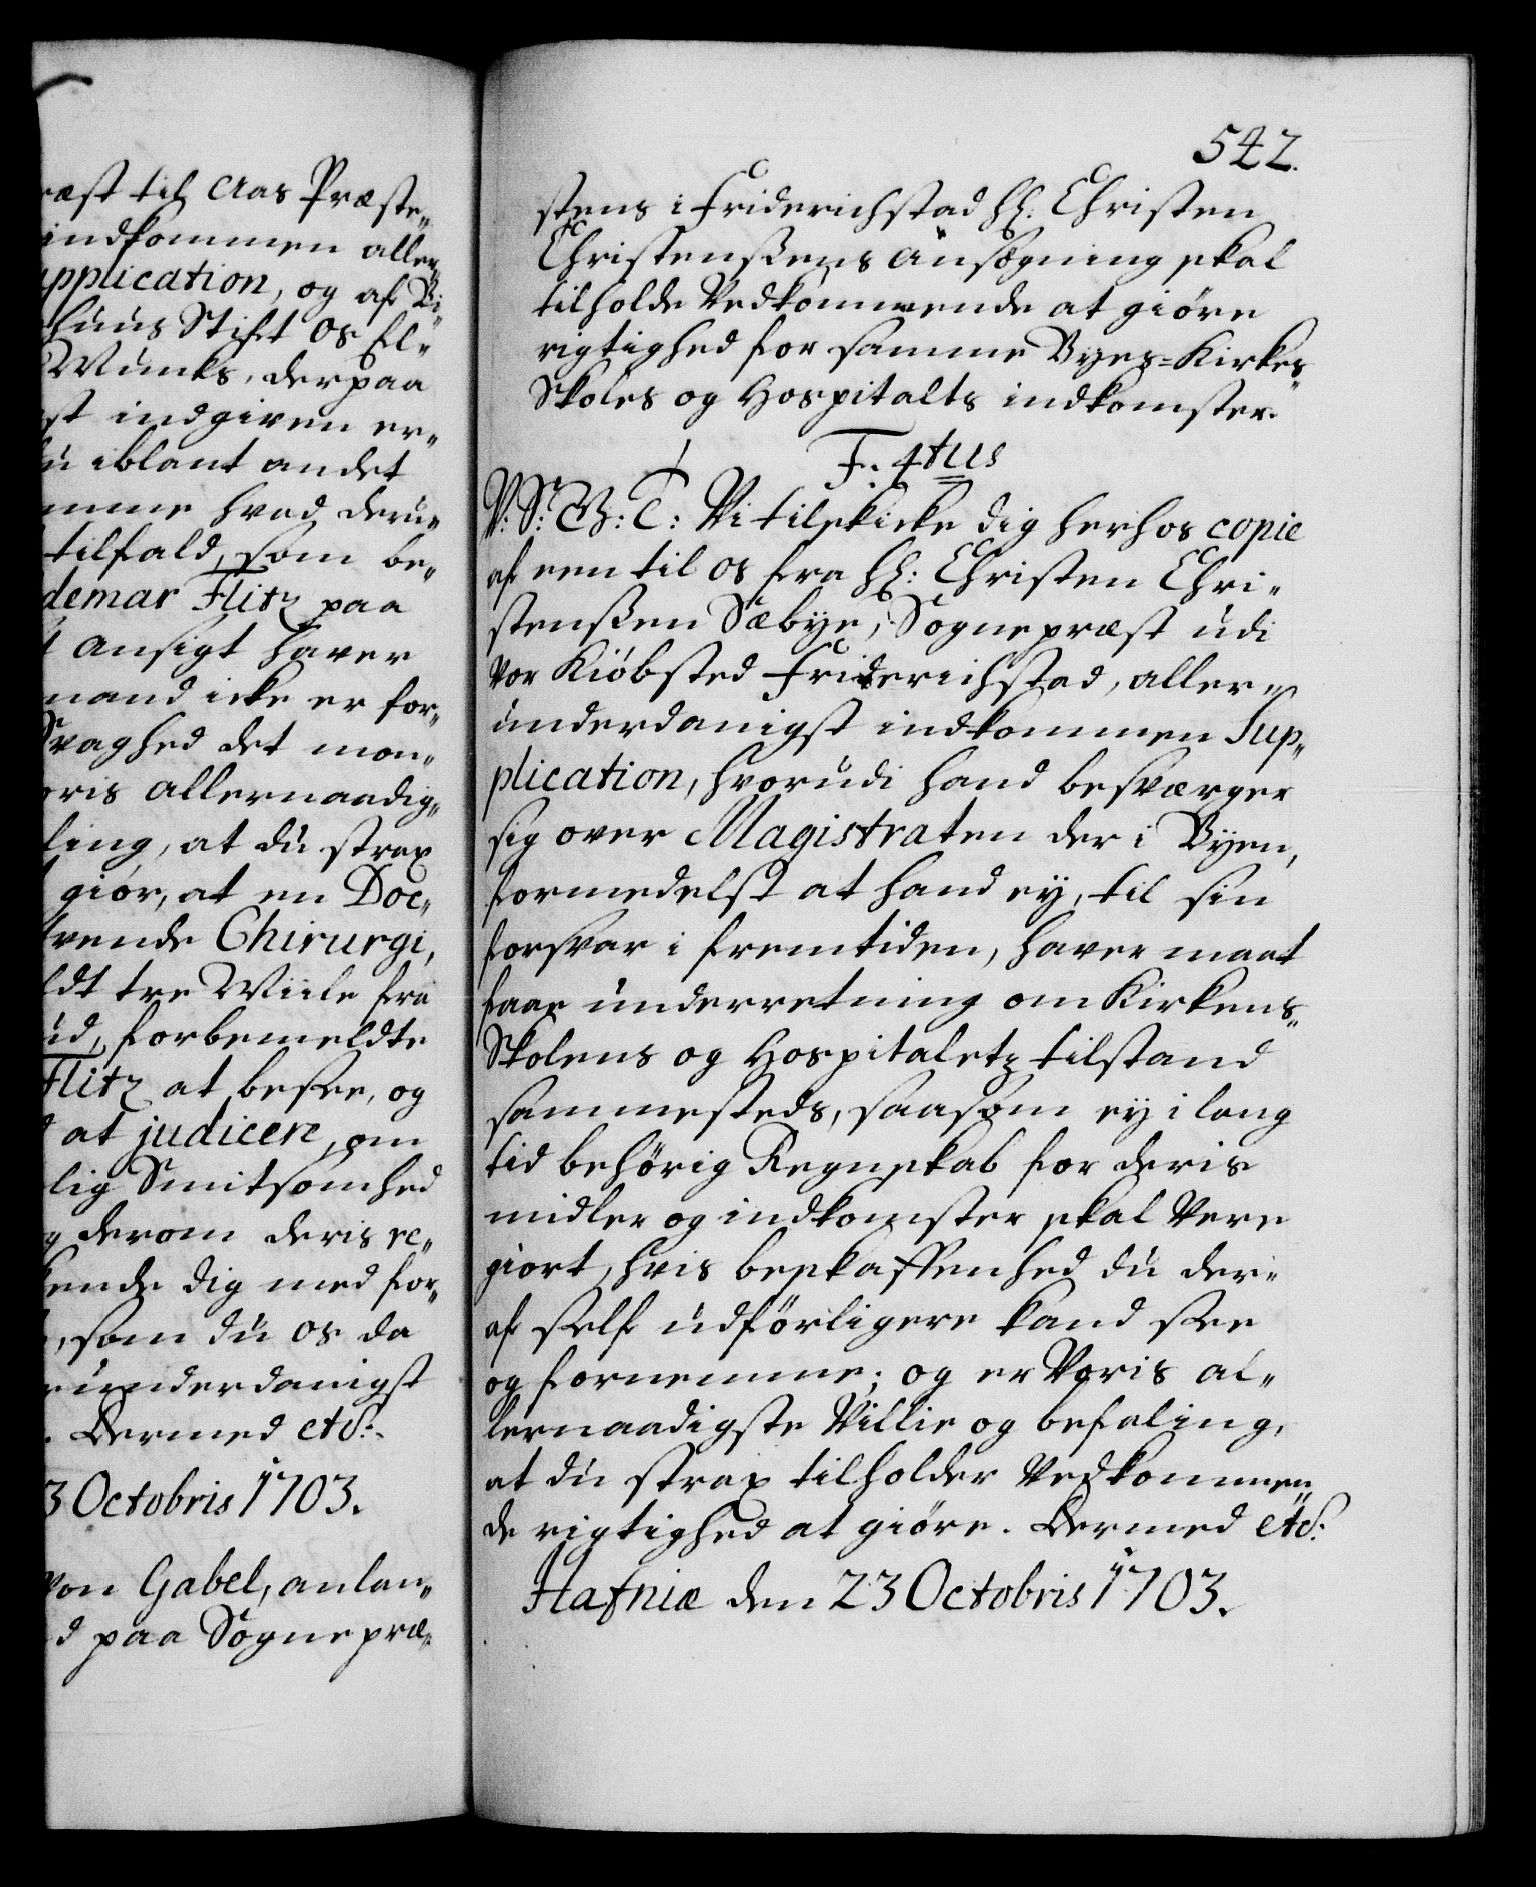 ræst til Aas Præste„
indkommen aller„
pplication, og af Bi„
huus Stift Os El„
Munks, derpaa
st indgiven er„
u iblant andet
mme hvad deru„
tilfald, som be„
demar Flitz paa
Ansigt haver
mand icke er for„
Svaghed det mon„
oris allernaadig„
ling, at du strax
giör, at en Doc„
vende Chirurgi,
ldt tre Miile fra
ud, forbemeldte
Flitz at besee, og
at judicere, om
lig Smitsomhed
derom deris re„
ende dig med for„
, som du os da
runderdanigst
. Dermed etc:
3 Octobris 1703.
von Gabel, anlan„
d paa Sognepræ„
542.
stens i Friderichstad Hr: Christen
Christenßens Ansögning skal
tilholde Vedkommende at giöre
rigtighed for samme Byes=Kirkes„
Skoles og Hospitalts indkomster.
F. 4tus
V: S: G: T: Vi tilskicke dig herhos copie
af een til os fra Hr: Christen Chri„
stenßen Sæbye, Sognepræst udi
vor Kiöbsted Friderichstad, aller„
underdanigst indkommen Sup„
plication, hvorudi hand besværger
sig over Magistraten der i Byen,
formedelst at hand ey, til sin
forsvar i fremtiden, haver maat
faae underretning om Kirkens„
Skolens og Hospitaletz tilstand
sammesteds, saasom ey i lang
tid behörig Regnskab for deris
midler og indkomster skal Vere
giort, hvis beskaffenhed du der„
af self udförligere kand see
og fornemme; og er Voris al„
lernaadigste Villie og befaling,
at du strax tilholder Vedkommen„
de rigtighed at giöre. Dermed etc:
Hafniæ den 23 Octobris 1703.